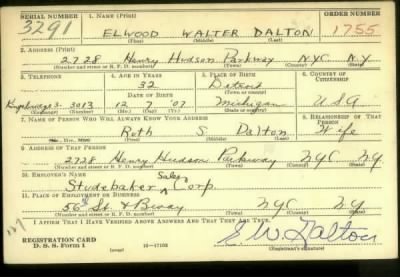 SERIAL NUMBER 1. NAME (Print) ORDER NUMBER
3291 ELWOOD WALTER DALTON 1755
(First) (Middle) (Last)
2. ADDRESS (Print)
2728 Henry Hudson Parkway NYC N.Y
(Number and street or R. F. D. number) (Town) (County) (State)
3. TELEPHONE 4. AGE IN YEARS 5. PLACE OF BIRTH 6. COUNTRY OF CITIZENSHIP
32 Detroit
DATE OF BIRTH (Town or county)
Kingsbridge 3-3013 12 7 '07 Michigan USA
(Mo.) (Day) (Yr.) (State or country)
7. NAME OF PERSON WHO WILL ALWAYS KNOW YOUR ADDRESS 8. RELATIONSHIP OF THAT PERSON
Ruth S Dalton Wife
(Mr., Mrs., Miss) (First) (Middle) (Last)
9. ADDRESS OF THAT PERSON
2728 Henry Hudson Parkway NYC NY
(Number and street or R. F. D. number) (Town) (County) (State)
10. EMPLOYER'S NAME
Studebaker Sales Corp.
11. PLACE OF EMPLOYMENT OR BUSINESS
56th St & Bway NYC NY
(Number and street or R. F. D. number) (Town) (County) (State)
I AFFIRM THAT I HAVE VERIFIED ABOVE ANSWERS AND THAT THEY ARE TRUE.
REGISTRATION CARD E. W. Dalton
D. S. S. Form 1 (over) 16—17105 (Registrant's signature)